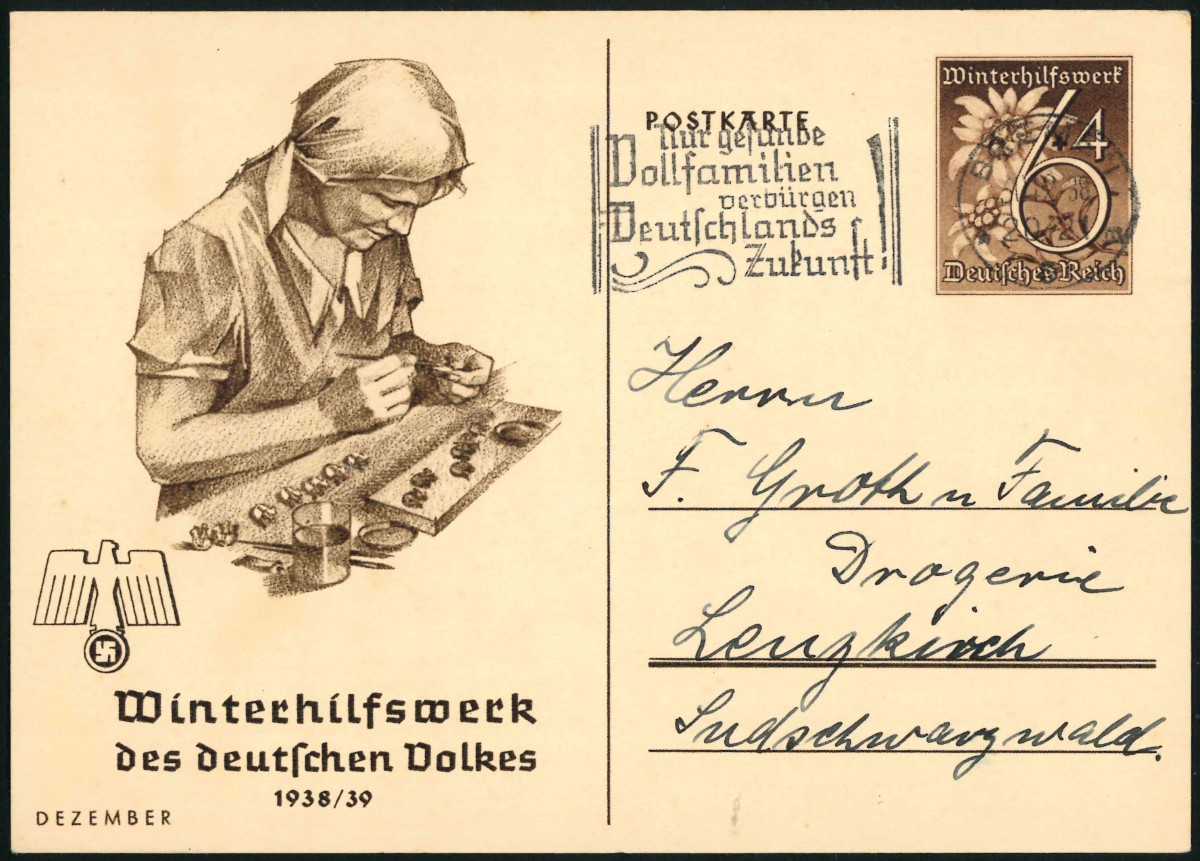 Winterhilfswerk
des deutſchen Volkes
1938/39
DEZEMBER
POSTKARTE
Nur geſunde
Vollfamilien
verbürgen
Deutſchlands
Zukunft!
Winterhilfswerk
6+4
Deutſches Reich
Herrn
F. Groth u Familie
Drogerie
Lenzkirch
Südschwarzwald.